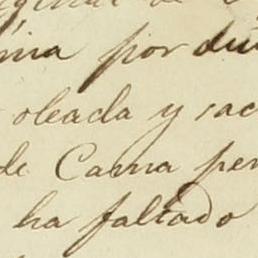 por
oleada y sac
de Cama per
ha faltado